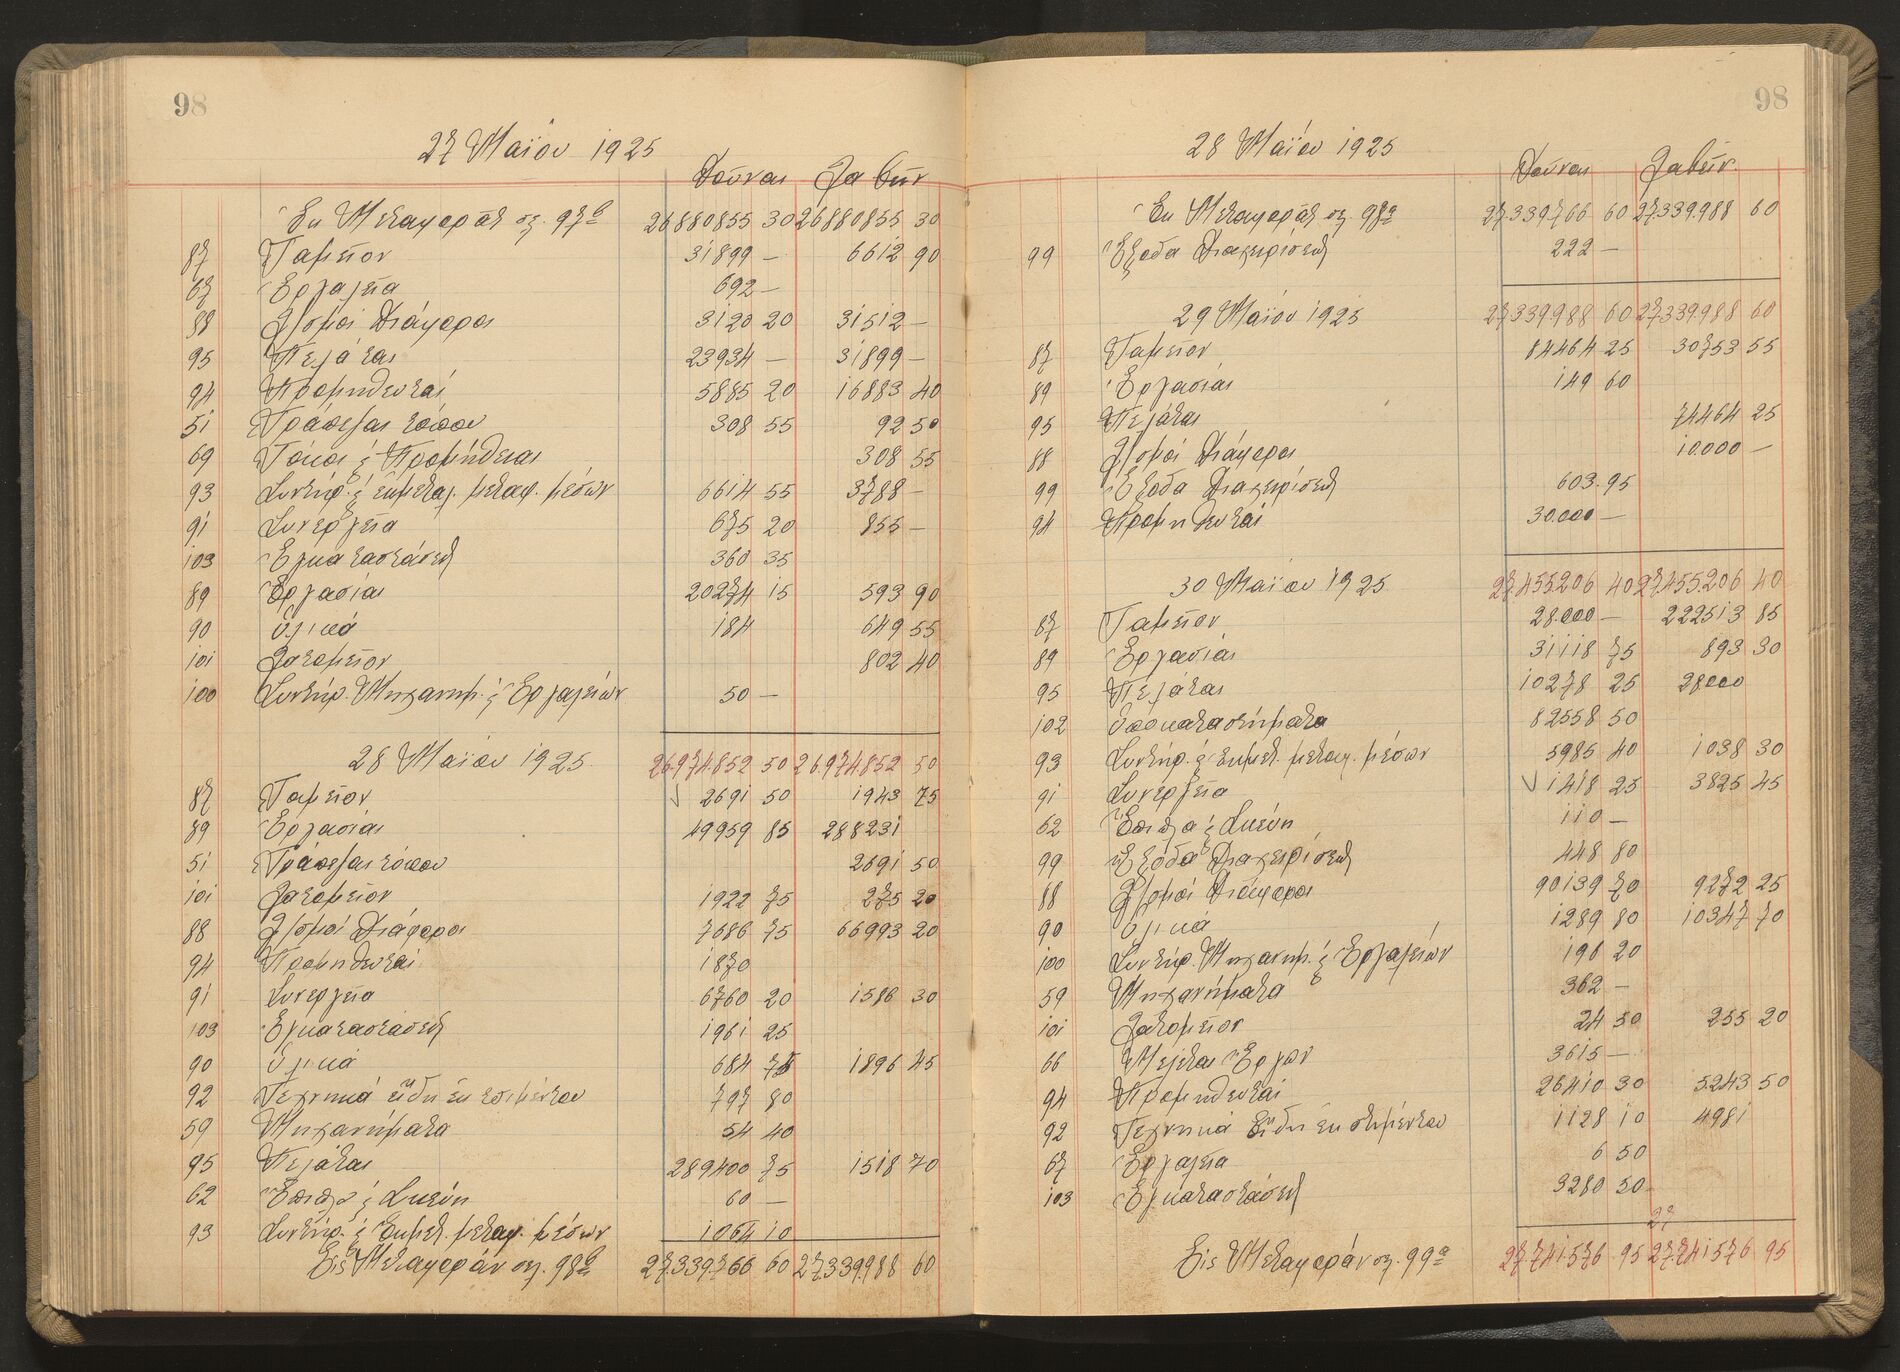 98
27 Μαΐου 1925
Δοῦναι Λαβεῖν
Ἐκ Μεταφορᾶς σελ. 97β 26880855 30 26880855 30
87 Ταμεῖον 31899 — 6612 90
67 Ἐργαλεῖα 692 —
88 Λ/σμοί Διάφοροι 3120 20 31512 —
95 Πελάται 23934 — 31899 —
94 Προμηθευταί 5885 20 16883 40
51 Τράπεζαι τόπου 308 55 92 50
69 Τόκοι & Προμήθειαι 308 55
93 Συντήρ. & ἐκμεταλ. μεταφ. μέσων 6614 55 3788 —
91 Συνεργεῖα 675 20 855 —
103 Ἐγκαταστάσεις 360 35
89 Ἐργασίαι 20274 15 593 90
90 Ὑλικά 184 649 55
101 Λατομεῖον 802 40
100 Συντήρ. Μηχανημ. & Ἐργαλείων 50 —
28 Μαΐου 1925 26.974.852 50 26974852 50
87 Ταμεῖον 2691 50 1943 75
89 Ἐργασίαι 49959 85 288231
51 Τράπεζαι τόπου 2691 50
101 Λατομεῖον 1922 75 275 20
88 Λ/σμοί Διάφοροι 7686 75 66993 20
94 Προμηθευταί 1870
91 Συνεργεῖα 6760 20 1586 30
103 Ἐγκαταστάσεις 1961 25
90 Ὑλικά 684 75 1896 45
92 Τεχνηκά εἴδη ἐκ τσιμέντου 797 80
59 Μηχανήματα 54 40
95 Πελάται 289400 75 1518 70
62 Ἔπιπλα & Σκεύη 60 —
93 Συντήρ. & Ἐκμετ. μεταφ. μέσων 1064 10
Εἰς Μεταφοράν σελ. 98β 27.339.766 60 27.339.988 60
98
28 Μαΐου 1925
Δοῦναι Λαβεῖν
Ἐκ Μεταφορᾶς σελ. 98α 27.339.766 60 27.339.988 60
99 Ἔξοδα Διαχειρίσεως 222 —
29 Μαΐου 1925 27.339.988 60 27.339.988 60
87 Ταμεῖον 84464 25 30753 55
89 Ἐργασίαι 149 60
95 Πελάται 74464 25
88 Λ/σμοί Διάφοροι 10.000 —
99 Ἔξοδα Διαχειρίσεως 603.95
94 Προμηθευταί 30.000 —
30 Μαΐου 1925. 27.455.206 40 27.455.206 40
87 Ταμεῖον 28.000 — 222513 85
89 Ἐργασίαι 31118 75 893 30
95 Πελάται 10278 25 28000
102 Ὑποκαταστήματα 82558 50
93 Συντήρ. & ἐκμετ. μεταφ. μέσων 5985 40 1038 30
91 Συνεργεῖα 1418 25 3825 45
62 Ἔπιπλα & Σκεύη 110 —
99 Ἔξοδα Διαχειρίσεως 448 80
88 Λ/σμοί Διάφοροι 90139 70 9272 25
90 Ὑλικά 1289 80 10347 70
100 Συντήρ. Μηχανημ. & Ἐργαλείων 196 20
59 Μηχανήματα 362 —
101 Λατομεῖον 24 50 255 20
66 Μελέται Ἔργων 3615 —
94 Προμηθευταί 26410 30 5243 50
92 Τεχνηκά Εἴδη ἐκ τσιμέντου 1128 10 4981
67 Ἐργαλεῖα 6 50
103 Ἐγκαταστάσεις 3280 50
27
Εἰς Μεταφοράν σελ. 99α 27.741.576 95 27.741.576 95